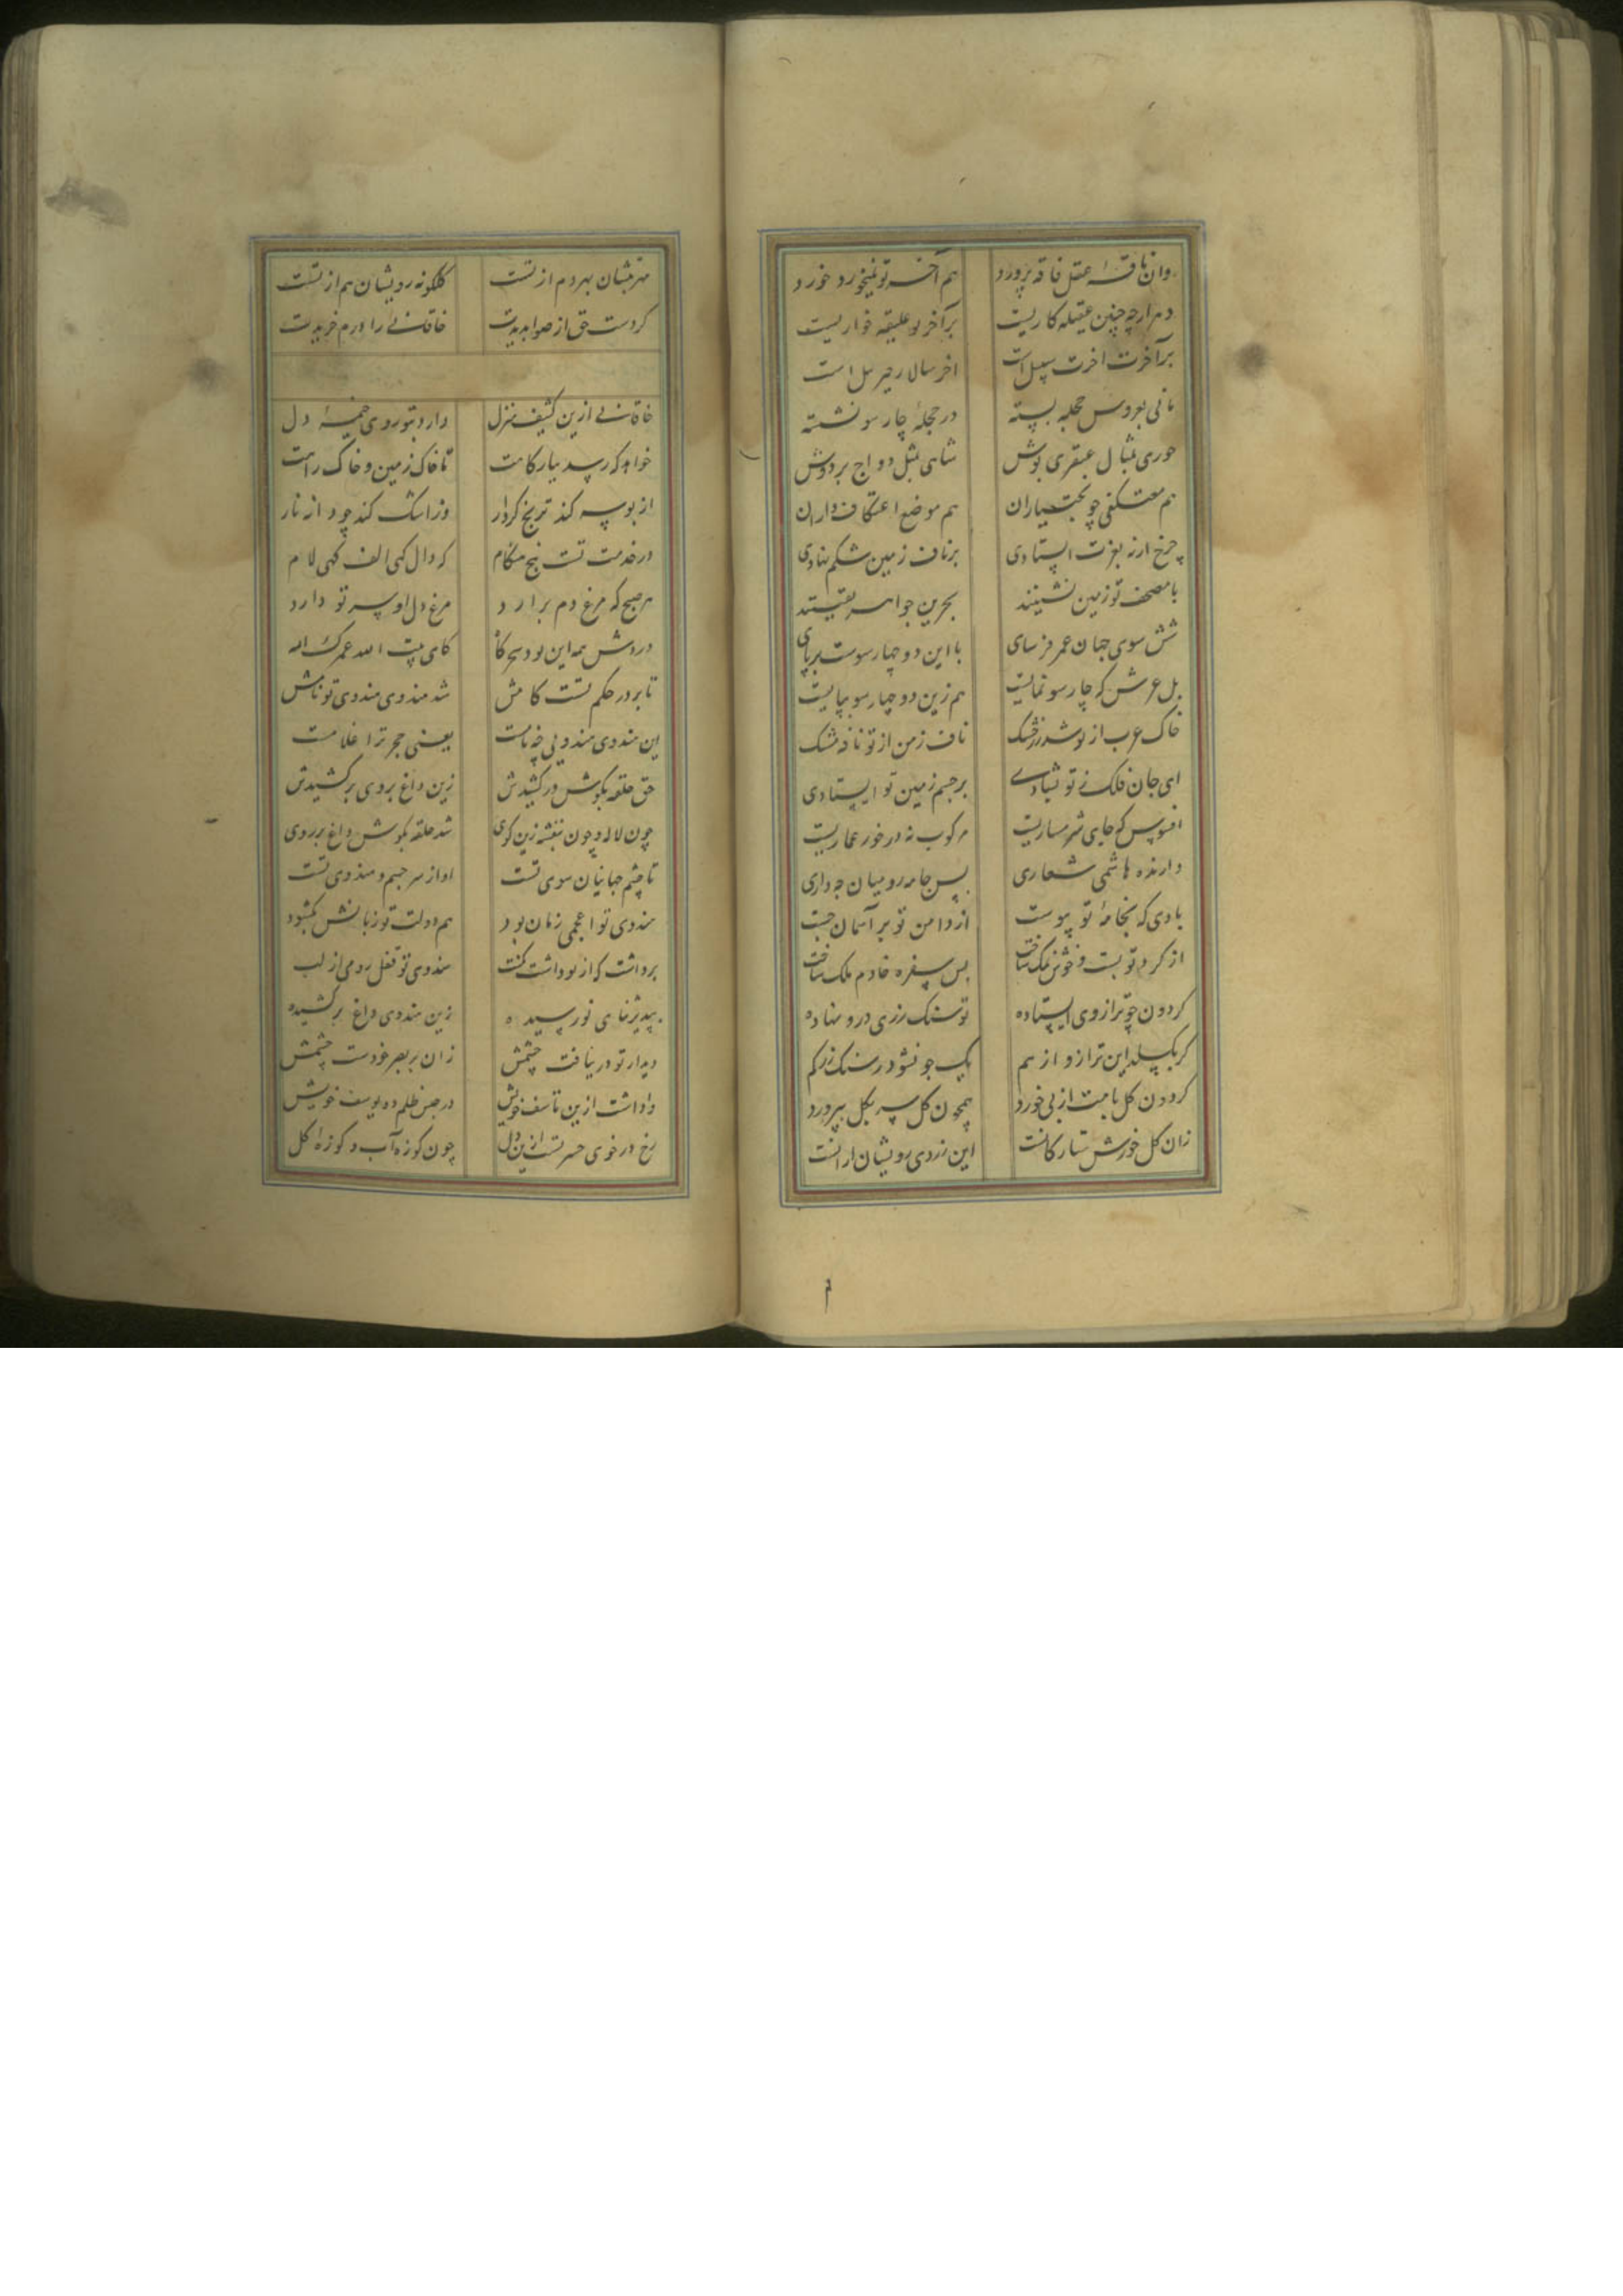 وان ناقهٔ عقل فاقه پرورد هم آخر تو نیم خورد خورد
دهر ارچه چنین عقیله کاریست بر آخر تو علیقه خواریست
بر آخرت آخرت سبیل است آخر سالار جبرئیل است
مانی بعروس حجله بسته در حجلهٔ چار سو نشسته
حوری بمثال عبقری پوش شاهی بمثل دواج بر دوش
هم معتکفی چو بخت یاران هم موضع اعتکاف داران
چرخ ارنه بغرت ایستادی بر ناف زمین شکم نهادی
با مصحف تو زمین نشینند بحرین جواهر یقینند
شش سوی جهان عمر فرسای با این دو چهار سوست بر پای
بل عرش که چار سو نمایست هم زین دو چهار سو بپایست
خاک عرب از تو شد زر خشک ناف زمن از تو نافه مشک
ای جان فلک ز تو بشادی بر جسم زمین تو ایستادی
افسوس که جای شرمساریست مرکوب نه در خور عماریست
دارنده هاشمی شعاری پس جامه رومیان چه داری
بادی که بخامهٔ تو پیوست از دامن تو بر آسمان جست
از کرد تو بست و خوش نمک ساخت پس سفره خادم ملک ساخت
کردون چو ترازوی ایستاده تو سنک زری درو نهاده
کر بکسلد این ترازو از هم یک جو نشود ز سنک زر کم
کردون کل بامت از پی خورد همچون کل سر بکل بپرورد
زان کل خورش ستارکانست این زردی رویشان ازانست
قرمشان بهر دم از تست کلکونه رویشان هم از تست
کردست حق از صوابدیدت خاقانی را درم خریدت
خاقانی ازین کثیف منزل دارد بتو روی خیمهٔ دل
خواهد که رسد ببارکاهت تا خاک زمین و خاک راهت
از بوسه کند ترنج کردار وز اشک کند چو دانه نار
در خدمت تست پنج هنکام که دال کهی الف کهی لام
هر صبح که مرغ دم برارد مرغ دل او سر تو دارد
دردش همه این بود سحرکاه کای بیت الله عمرک الله
تا بر در حکم تست کامش شد هندوی هندوی تو نامش
این هندوی هندوی چه نامست یعنی حجر ترا غلامست
حق حلقه بکوش در کشیدش زین داغ بروی بر کشیدش
چون لاله و چون بنفشه زین کوی شد حلقه بکوش داغ بر روی
تا چشم جهانیان سوی تست او از سر جسم و هندوی تست
هندوی تو اعجمی زبان بود هم دولت تو زبانش بکشود
برداشت که از تو داشت کنت هندوی تو قفل رومی از لب
بپذیر ثنای نو رسیده زین هندوی داغ بر کشیده
دیدار تو در نیافت چشمش زان بر بصر خودست خشمش
واداشت ازین تاسف خویش در حبس ظلم ده یوسف خویش
رخ در خوی حسرتست ازین دل چون کوزه آب و کوزهٔ کل